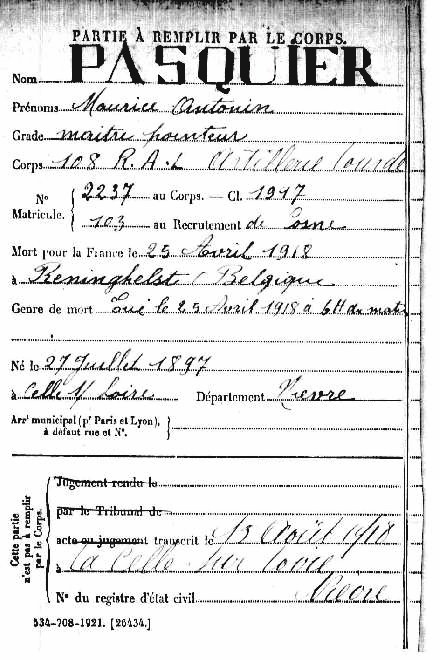 PARTIE À REMPLIR PAR LE CORPS.
Nom PASQUIER
Prénoms Maurice Antonin
Grade maitre pointeur
Corps 108 R.A.L Artillerie lourde
N° Matricule. { 2237 au Corps. — Cl. 1917
103 au Recrutement de Cosne
Mort pour la France le 25 Avril 1918
à Reninghelst / Belgique
Genre de mort Tué le 25 Avril 1918 à 6H du mat
Né le 27 Juillet 1897
à Celle s/ Loire Département Nievre
Arrt municipal (pr Paris et Lyon),
à défaut rue et N°.
Cette partie n'est pas à remplir par le Corps.
Jugement rendu le
par le Tribunal de
acte ou jugement transcrit le 15 Août 1918
à La Celle sur Loire
Nièvre
N° du registre d'état civil
534-708-1921. [26434.]